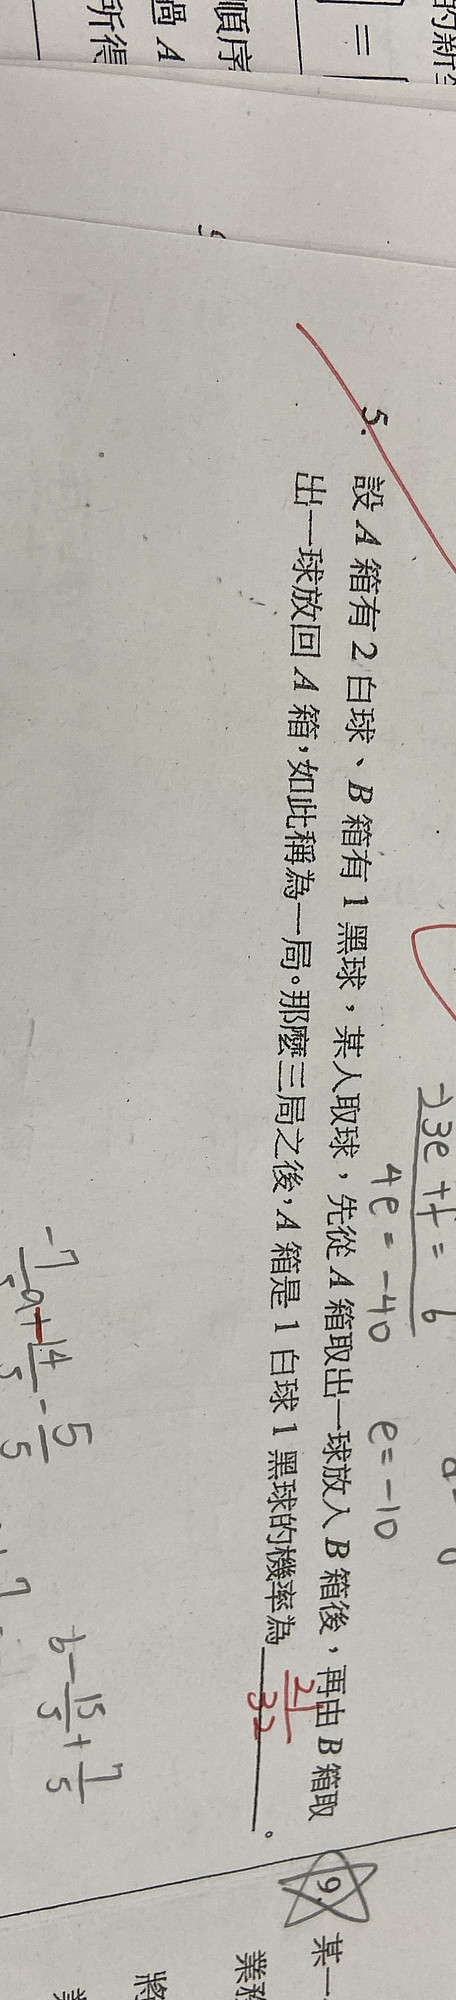 的新
順序
過 A
所得
5. 設 A 箱有 2 白球、B 箱有 1 黑球，某人取球，先從 A 箱取出一球放入 B 箱後，再由 B 箱取
出一球放回 A 箱，如此稱為一局。那麼三局之後，A 箱是 1 白球 1 黑球的機率為 21/32 。
-)3e+f= 6
4e = -40
e = -10
9.
某一
業務
將